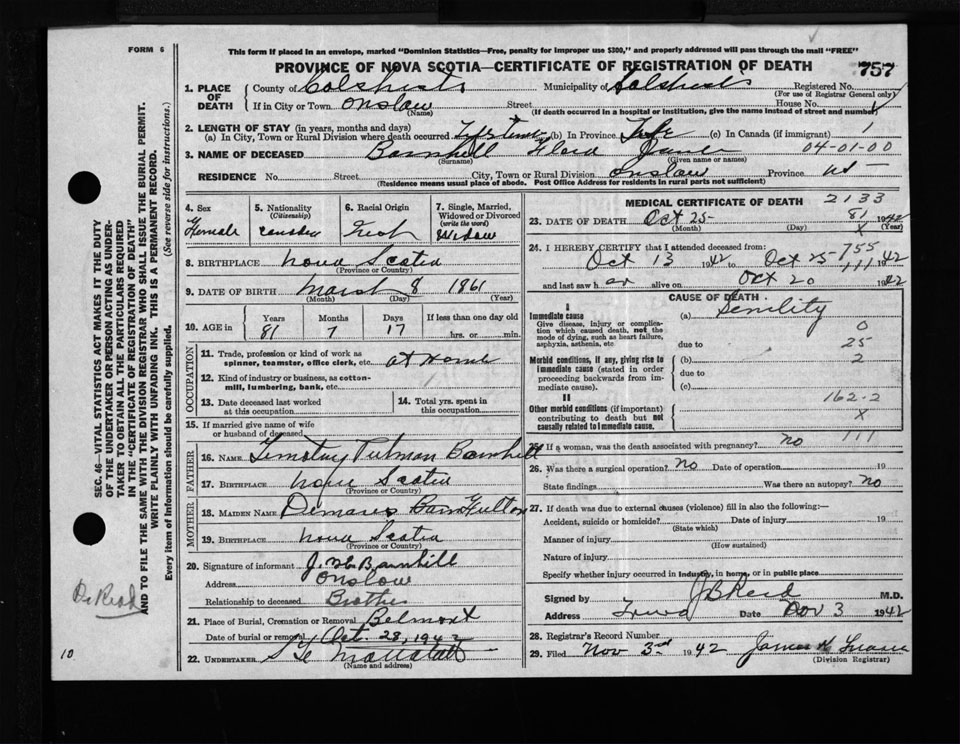 FORM 6
This form if placed in an envelope, marked "Dominion Statistics—Free, penalty for improper use $300," and properly addressed will pass through the mail "FREE"
PROVINCE OF NOVA SCOTIA—CERTIFICATE OF REGISTRATION OF DEATH
757
1. PLACE OF DEATH County of Colchester Municipality of Colchester Registered No.
(For use of Registrar General only)
If in City or Town Onslow Street House No.
(Name) (If death occurred in a hospital or institution, give the name instead of street and number)
2. LENGTH OF STAY (in years, months and days)
(a) In City, Town or Rural Division where death occurred Lifetime (b) In Province Life (c) In Canada (if immigrant) 1
3. NAME OF DECEASED Barnhill Flora 04-01-00
(Surname) (Given name or names)
RESIDENCE No. Street City, Town or Rural Division Onslow Province NS
(Residence means usual place of abode. Post Office Address for residents in rural parts not sufficient)
4. Sex Female
5. Nationality (Citizenship) Canadian
6. Racial Origin Irish
7. Single, Married, Widowed or Divorced (write the word) Widow
8. BIRTHPLACE Nova Scotia
(Province or Country)
9. DATE OF BIRTH March 8 1861
(Month) (Day) (Year)
10. AGE in Years 81 Months 7 Days 17 If less than one day old hrs. or min.
OCCUPATION
11. Trade, profession or kind of work as spinner, teamster, office clerk, etc. at Home
12. Kind of industry or business, as cotton-mill, lumbering, bank, etc.
13. Date deceased last worked at this occupation
14. Total yrs. spent in this occupation
15. If married give name of wife or husband of deceased
FATHER
16. NAME Timothy Putman Barnhill
17. BIRTHPLACE Nova Scotia
(Province or Country)
MOTHER
18. MAIDEN NAME Demaris Fulton
19. BIRTHPLACE Nova Scotia
(Province or Country)
20. Signature of informant Barnhill
Address Onslow
Relationship to deceased Brother
21. Place of Burial, Cremation or Removal Belmont
Date of burial or removal Oct. 28, 1942
22. UNDERTAKER
(Name and address)
MEDICAL CERTIFICATE OF DEATH 2133
23. DATE OF DEATH Oct 25 81 1942
(Month) (Day) (Year)
X
24. I HEREBY CERTIFY that I attended deceased from: 755
Oct 13 1942 to Oct 25 111 1942
and last saw her alive on Oct 20 1942
CAUSE OF DEATH
I
Immediate cause
Give disease, injury or complication which caused death, not the mode of dying, such as heart failure, asphyxia, asthenia, etc.
(a) Senility
0
due to 25
Morbid conditions, if any, giving rise to immediate cause (stated in order proceeding backwards from immediate cause).
(b) 2
due to
(c)
II
Other morbid conditions (if important) contributing to death but not causally related to immediate cause.
162-2
X
25. If a woman, was the death associated with pregnancy? No 111
26. Was there a surgical operation? No Date of operation 19
State findings Was there an autopsy? No
27. If death was due to external causes (violence) fill in also the following:—
Accident, suicide or homicide? Date of injury 19
(State which)
Manner of injury
(How sustained)
Nature of injury
Specify whether injury occurred in industry, in home, or in public place
Signed by J B Reid M.D.
Address Truro Date Nov 3 1942
28. Registrar's Record Number
29. Filed Nov 3rd 1942 James
(Division Registrar)
SEC. 46—VITAL STATISTICS ACT MAKES IT THE DUTY
OF THE UNDERTAKER OR PERSON ACTING AS UNDER-
TAKER TO OBTAIN ALL THE PARTICULARS REQUIRED
IN THE "CERTIFICATE OF REGISTRATION OF DEATH"
AND TO FILE THE SAME WITH THE DIVISION REGISTRAR WHO SHALL ISSUE THE BURIAL PERMIT.
WRITE PLAINLY WITH UNFADING INK. THIS IS A PERMANENT RECORD.
Every item of Information should be carefully supplied. (See reverse side for instructions.)
Dr Reid
10